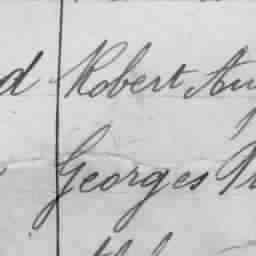 d Robert Au
Georges